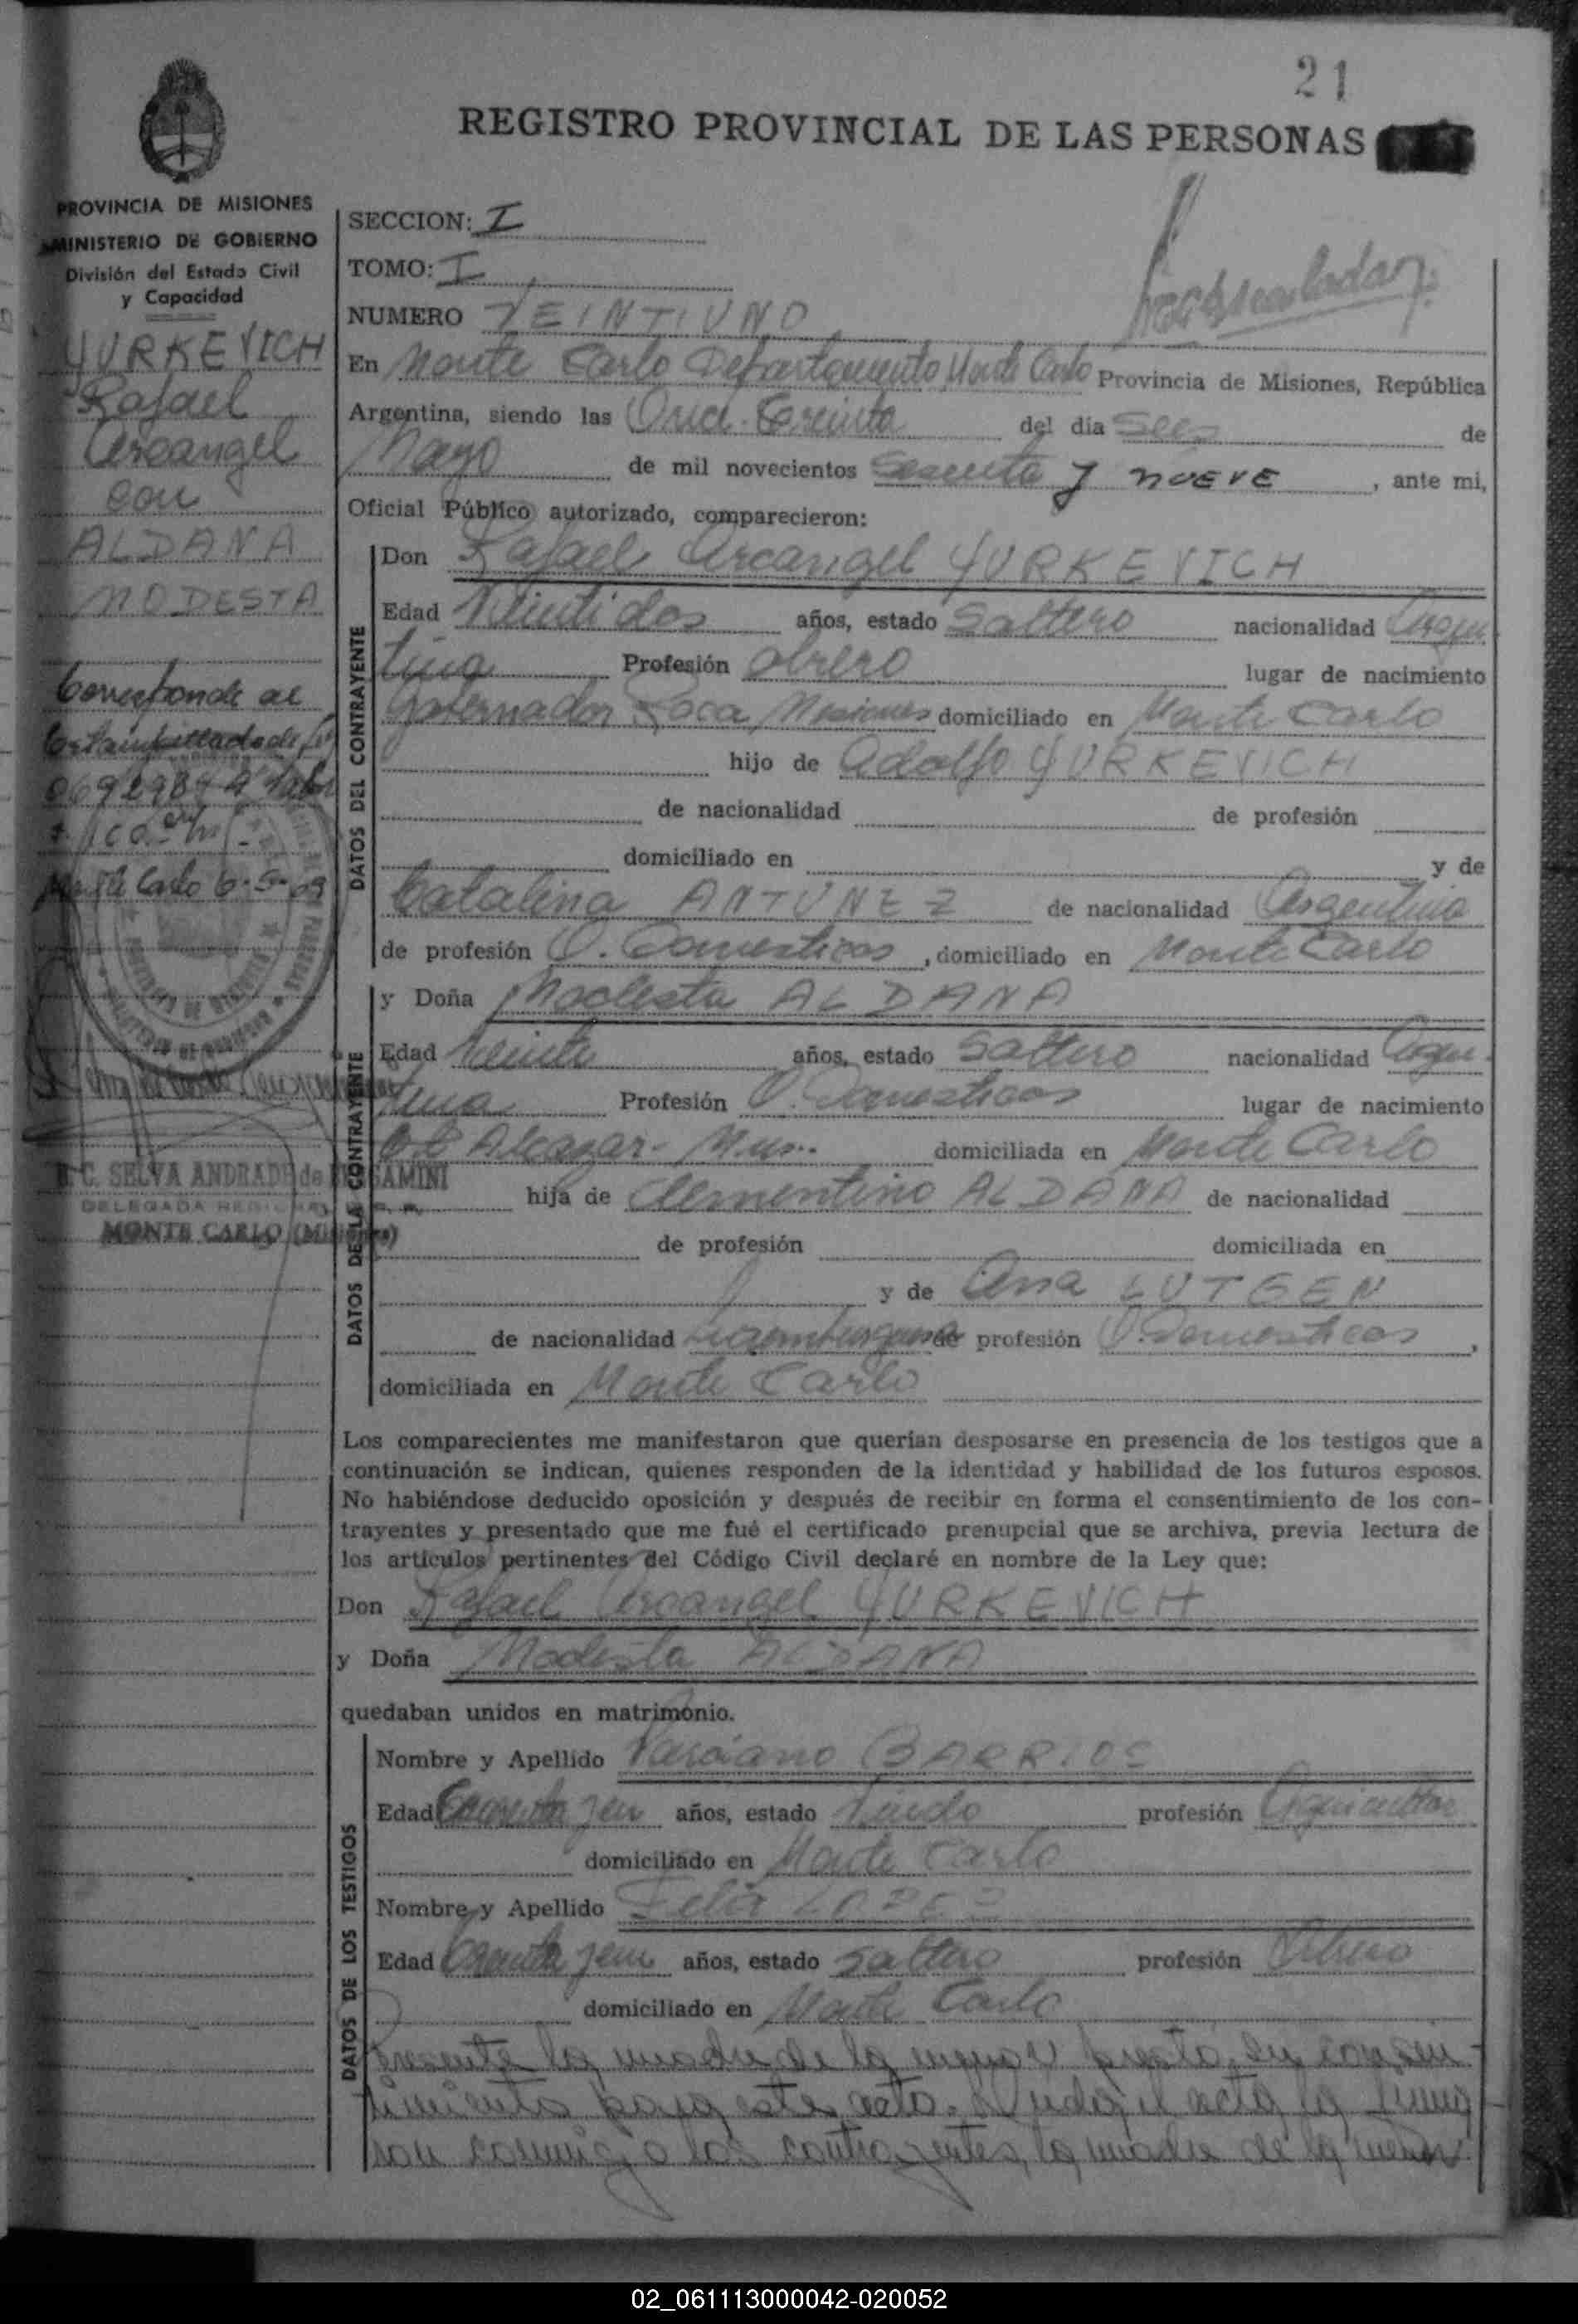 21
REGISTRO PROVINCIAL DE LAS PERSONAS
PROVINCIA DE MISIONES
MINISTERIO DE GOBIERNO
División del Estado Civil
y Capacidad
YURKEVICH
Rafael
Arcangel
con
ALDANA
MODESTA
Corresponde al
Monte Carlo 6-5-69
H. C. SELVA ANDRADE de BERGAMINI
DELEGADA
MONTE CARLO (Misiones)
SECCION: I
TOMO: I
NUMERO VEINTIUNO
En Monte Carlo Departamento Monte Carlo Provincia de Misiones, República
Argentina, siendo las Once Treinta del día Seis de
Mayo de mil novecientos Sesenta y NUEVE, ante mi,
Oficial Público autorizado, comparecieron:
DATOS DEL CONTRAYENTE
Don Rafael Arcangel YURKEVICH
Edad Veintidos años, estado Soltero nacionalidad Argen
tina Profesión Obrero lugar de nacimiento
Gobernador Roca, Misiones domiciliado en Monte Carlo
hijo de Adolfo YURKEVICH
de nacionalidad de profesión
domiciliado en y de
Catalina ANTUNEZ de nacionalidad Argentina
de profesión Q. Domesticos, domiciliado en Monte Carlo
DATOS DE LA CONTRAYENTE
y Doña Modesta ALDANA
Edad Veinte años, estado Soltero nacionalidad Argen
tina Profesión Q. Domesticos lugar de nacimiento
El Alcazar- Mnes. domiciliada en Monte Carlo
hija de Clementino ALDANA de nacionalidad
de profesión domiciliada en
y de Ana LUTGEN
de nacionalidad Luxemburguesa de profesión Q. Domesticos,
domiciliada en Monte Carlo
Los comparecientes me manifestaron que querían desposarse en presencia de los testigos que a
continuación se indican, quienes responden de la identidad y habilidad de los futuros esposos.
No habiéndose deducido oposición y después de recibir en forma el consentimiento de los con-
trayentes y presentado que me fué el certificado prenupcial que se archiva, previa lectura de
los artículos pertinentes del Código Civil declaré en nombre de la Ley que:
Don Rafael Arcangel YURKEVICH
y Doña Modesta ALDANA
quedaban unidos en matrimonio.
DATOS DE LOS TESTIGOS
Nombre y Apellido BARRIOS
Edad años, estado Viudo profesión Agricultor
domiciliado en Monte Carlo
Nombre y Apellido Felix LOPEZ
Edad años, estado Soltero profesión Obrero
domiciliado en Monte Carlo
Presente la madre de la menor prestó su consen-
timiento para este acto. Leida el acta la firma
ron conmigo los contrayentes, la madre de la menor
02_061113000042-020052